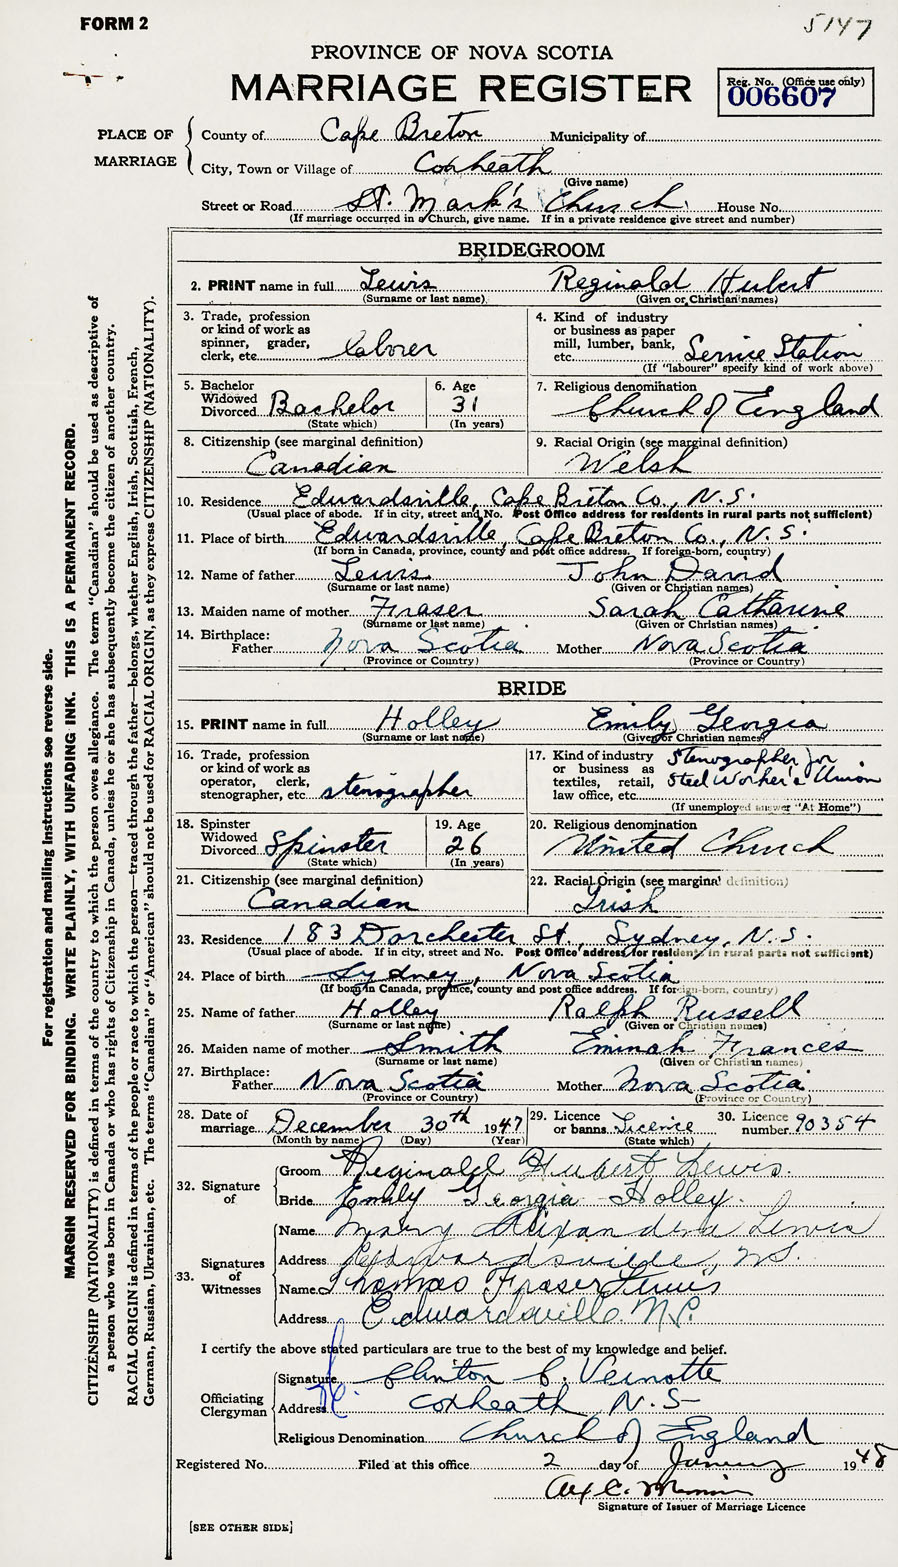 FORM 2
5147
PROVINCE OF NOVA SCOTIA
MARRIAGE REGISTER
Reg. No. (Office use only)
006607
PLACE OF MARRIAGE
County of Cape Breton Municipality of
City, Town or Village of Coxheath
(Give name)
Street or Road St. Mark's Church House No.
(If marriage occurred in a Church, give name. If in a private residence give street and number)
BRIDEGROOM
2. PRINT name in full Lewis Reginald Hubert
(Surname or last name) (Given or Christian names)
3. Trade, profession or kind of work as spinner, grader, clerk, etc. laborer
4. Kind of industry or business as paper mill, lumber, bank, etc. Service Station
(If "labourer" specify kind of work above)
5. Bachelor Widowed Divorced Bachelor
(State which)
6. Age 31
(In years)
7. Religious denomination
Church of England
8. Citizenship (see marginal definition)
Canadian
9. Racial Origin (see marginal definition)
Welsh
10. Residence Edwardsville, Cape Breton Co., N.S.
(Usual place of abode. If in city, street and No. Post Office address for residents in rural parts not sufficient)
11. Place of birth Edwardsville, Cape Breton Co., N.S.
(If born in Canada, province, county and post office address. If foreign-born, country)
12. Name of father Lewis John David
(Surname or last name) (Given or Christian names)
13. Maiden name of mother Fraser Sarah Catharine
(Surname or last name) (Given or Christian names)
14. Birthplace:
Father Nova Scotia Mother Nova Scotia
(Province or Country) (Province or Country)
BRIDE
15. PRINT name in full Holley Emily Georgia
(Surname or last name) (Given or Christian names)
16. Trade, profession or kind of work as operator, clerk, stenographer, etc. stenographer
17. Kind of industry or business as textiles, retail, law office, etc. Stenographer for Steel Worker's Union
(If unemployed answer "At Home")
18. Spinster Widowed Divorced Spinster
(State which)
19. Age 26
(In years)
20. Religious denomination
United Church
21. Citizenship (see marginal definition)
Canadian
22. Racial Origin (see marginal definition)
Irish
23. Residence 183 Dorchester St., Sydney, N.S.
(Usual place of abode. If in city, street and No. Post Office address for residents in rural parts not sufficient)
24. Place of birth Sydney, Nova Scotia
(If born in Canada, province, county and post office address. If foreign-born, country)
25. Name of father Holley Ralph Russell
(Surname or last name) (Given or Christian names)
26. Maiden name of mother Smith Eminah Frances
(Surname or last name) (Given or Christian names)
27. Birthplace:
Father Nova Scotia Mother Nova Scotia
(Province or Country) (Province or Country)
28. Date of marriage December 30th 1947
(Month by name) (Day) (Year)
29. Licence or banns Licence
(State which)
30. Licence number 90354
32. Signature of
Groom Reginald Hubert Lewis.
Bride Emily Georgia Holley.
33. Signatures of Witnesses
Name Mary Alexandra Lewis
Address Edwardsville, NS
Name Thomas Fraser Lewis
Address Edwardsville N.S.
I certify the above stated particulars are true to the best of my knowledge and belief.
Officiating Clergyman
Signature Clinton C. Veinotte
Address Coxheath N.S
Religious Denomination Church of England
Registered No. Filed at this office 2 day of January 1948
Alex C.
Signature of Issuer of Marriage Licence
[SEE OTHER SIDE]
For registration and mailing instructions see reverse side.
MARGIN RESERVED FOR BINDING. WRITE PLAINLY, WITH UNFADING INK. THIS IS A PERMANENT RECORD.
CITIZENSHIP (NATIONALITY) is defined in terms of the country to which the person owes allegiance. The term "Canadian" should be used as descriptive of
a person who was born in Canada or who has rights of Citizenship in Canada, unless he or she has subsequently become the citizen of another country.
RACIAL ORIGIN is defined in terms of the people or race to which the person—traced through the father—belongs, whether English, Irish, Scottish, French,
German, Russian, Ukrainian, etc. The terms "Canadian" or "American" should not be used for RACIAL ORIGIN, as they express CITIZENSHIP (NATIONALITY).